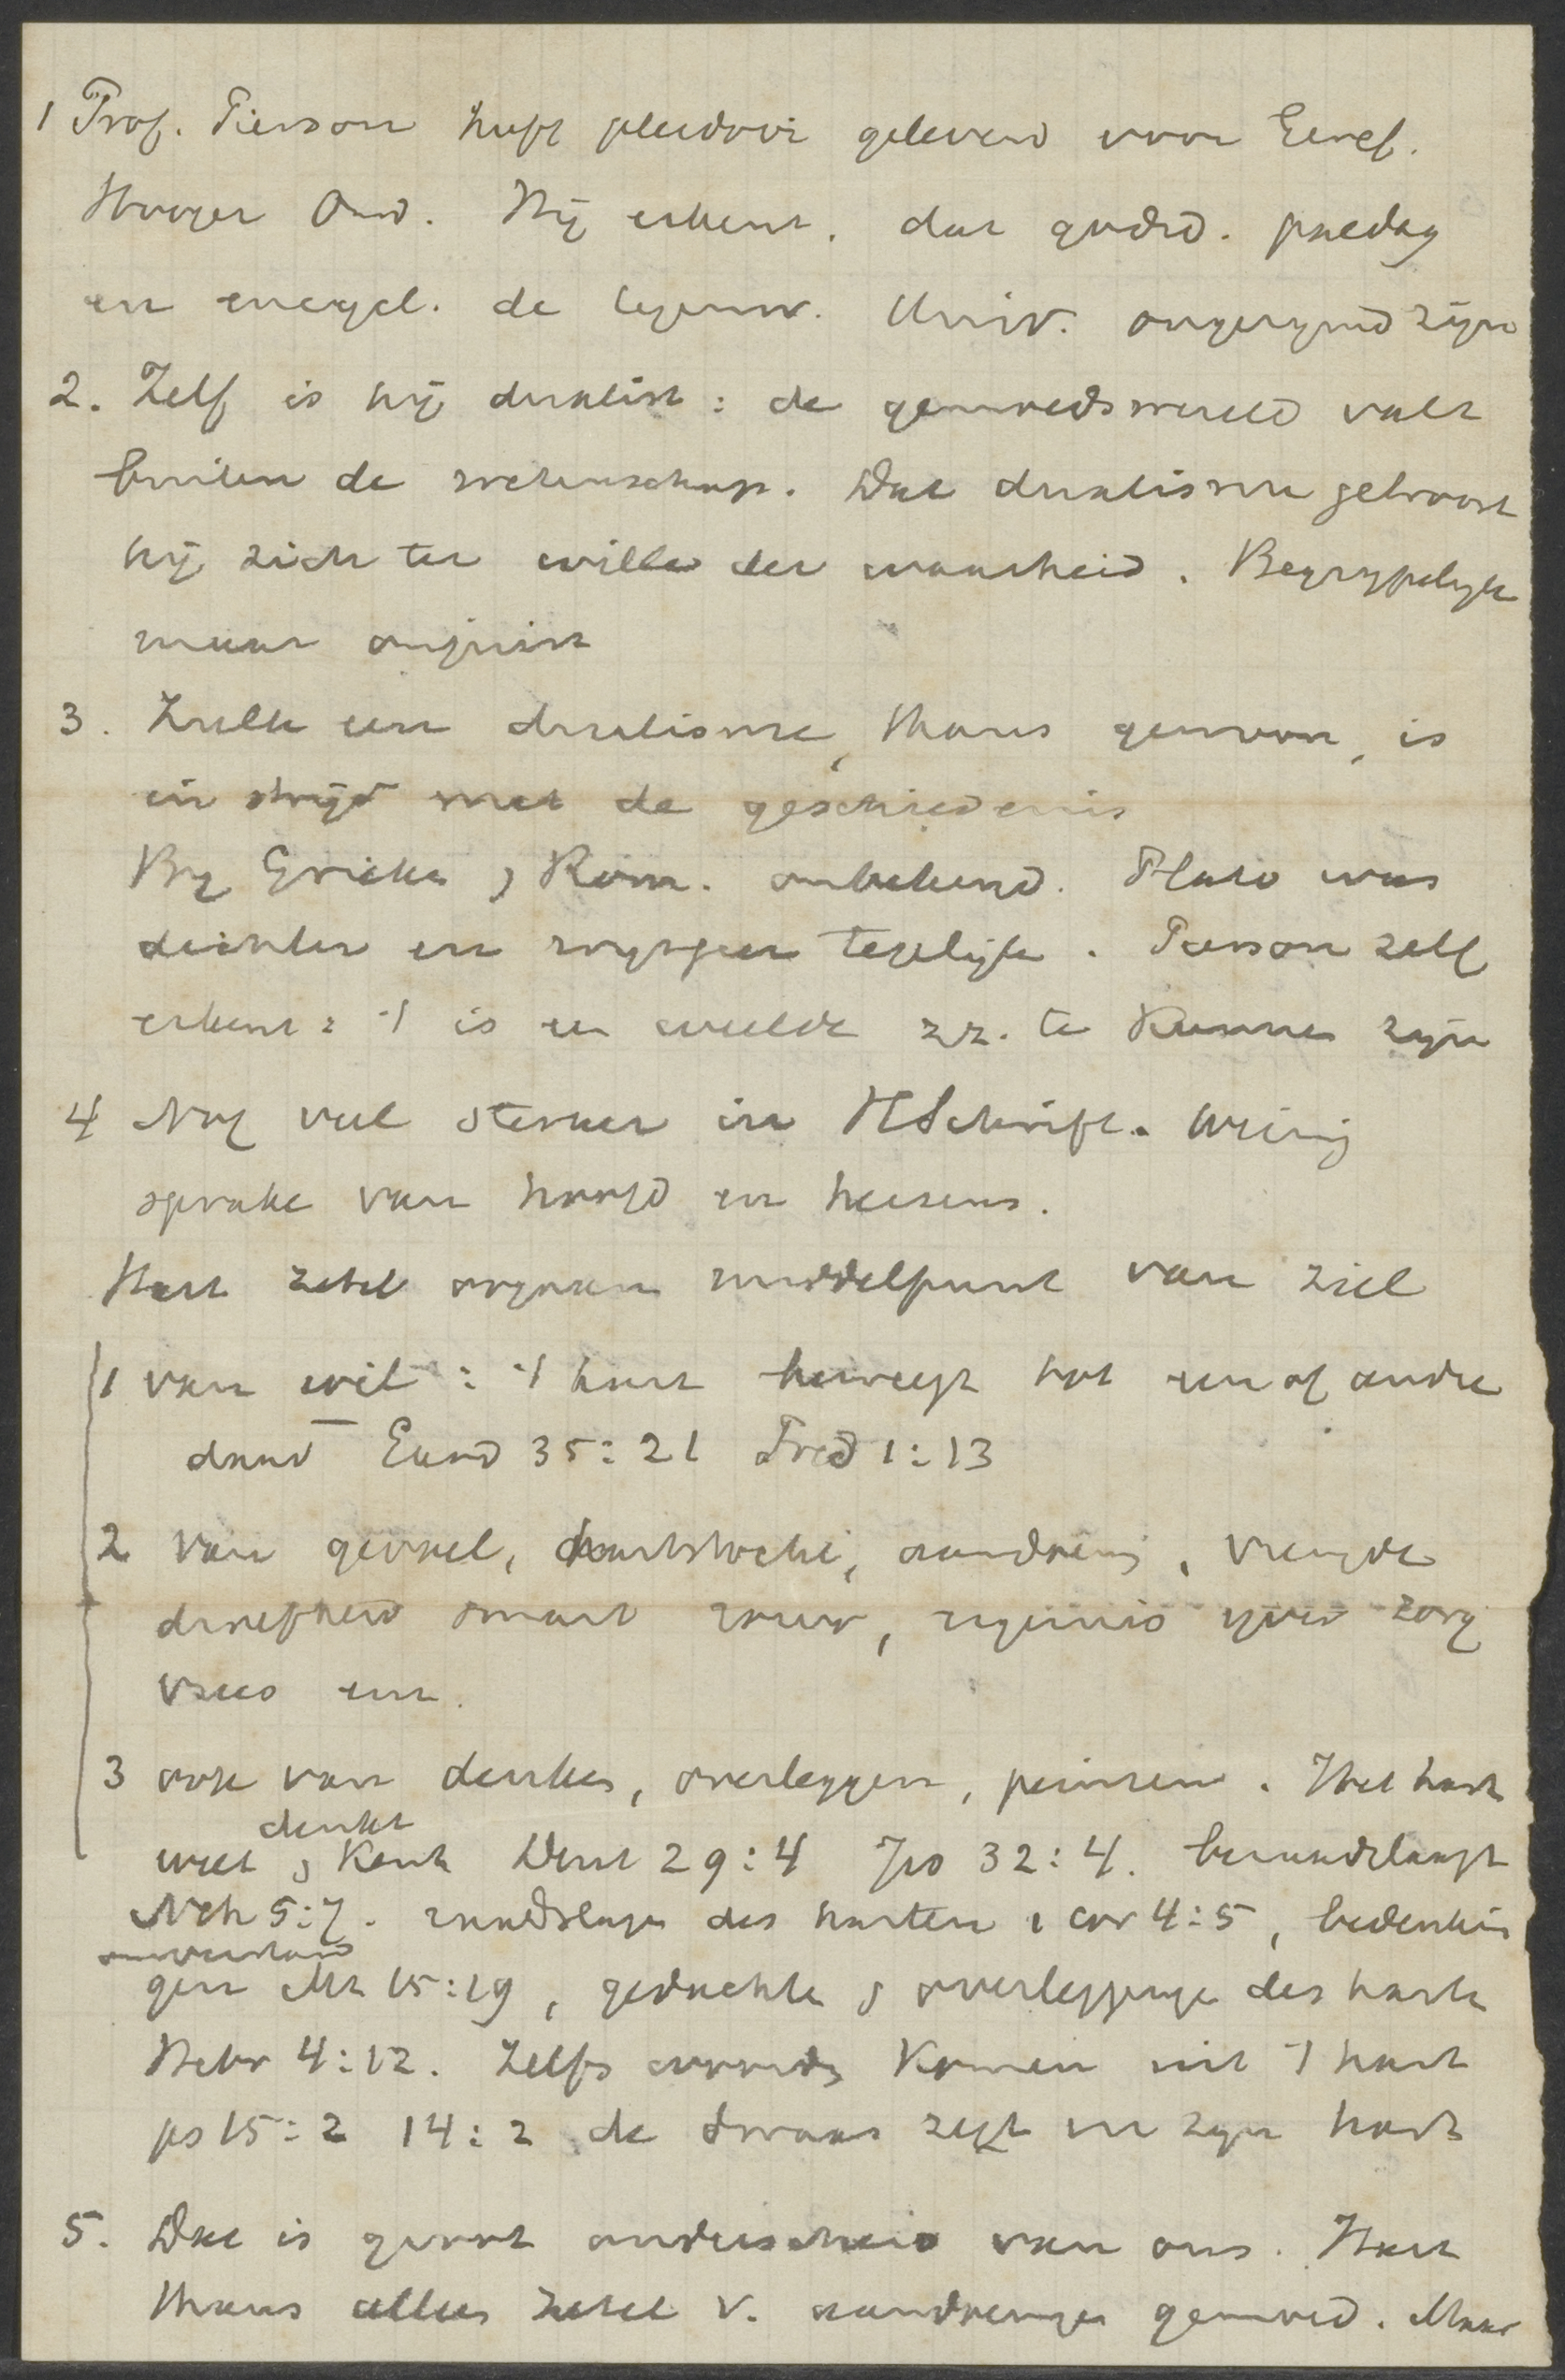 1 Prof. Pierson heeft pleidooi geleverd voor Geref.
Hooger Ond. Hij erkent, dat godsd. paedag
en evangel. de tegenw. Univ. ongerijmd zijn
2. Zelf is hij dualist: de gemoedswereld valt
buiten de wetenschap. Dat dualisme getroost
hij zich ter wille der waarheid. Begrijpelijk
maar onjuist
3. Zulk een dualisme, thans gewoon, is
in strijd met de geschiedenis
By Grieken & Rom. onbekend. Plato was
dichter en wijsgeer tegelijk. Pierson zelf
erkent: 't is een weelde zz. te kunnen zijn
4 Nog veel sterker in HSchrift. Weinig
sprake van hoofd en hersens.
Hart zetel orgaan middelpunt van ziel
1 van wil: 't hart beweegt tot een of andre
daad Exod 35:21 Pred 1:13
2 van gevoel, hartstocht, aandoening, vreugde
droefheid smart rouw, ergernis ijver zorg
vrees enz.
3 ook van denken, overleggen, peinzen. Het hart
denkt
weet & kent Deut 29:4 Jes 32:4. beraadslaagt
Neh 5:7. raadslagen des harten 1 Cor 4:5, bedenkin
onverstand
gen Mt 15:19, gedachten & overleggingen des harten
Hebr 4:12. Zelfs woorden komen uit 't hart
ps 15:2 14:2 de dwaas zegt in zijn hart
5. Dat is groot onderscheid van ons. Hart
thans alleen zetel v. aandoeningen gemoed. Maar